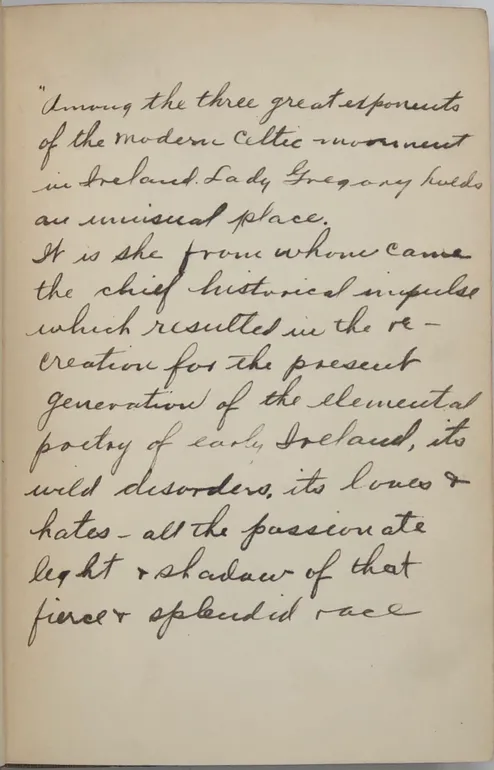 "Among the three great exponents
of the modern Celtic movement
in Ireland. Lady Gregory holds
an unusual place.
It is she from whom came
the chief historical impulse
which resulted in the re-
creation for the present
generation of the elemental
poetry of early Ireland, its
wild disorders, its loves &
hates - all the passionate
light & shadow of that
fierce & splendid race